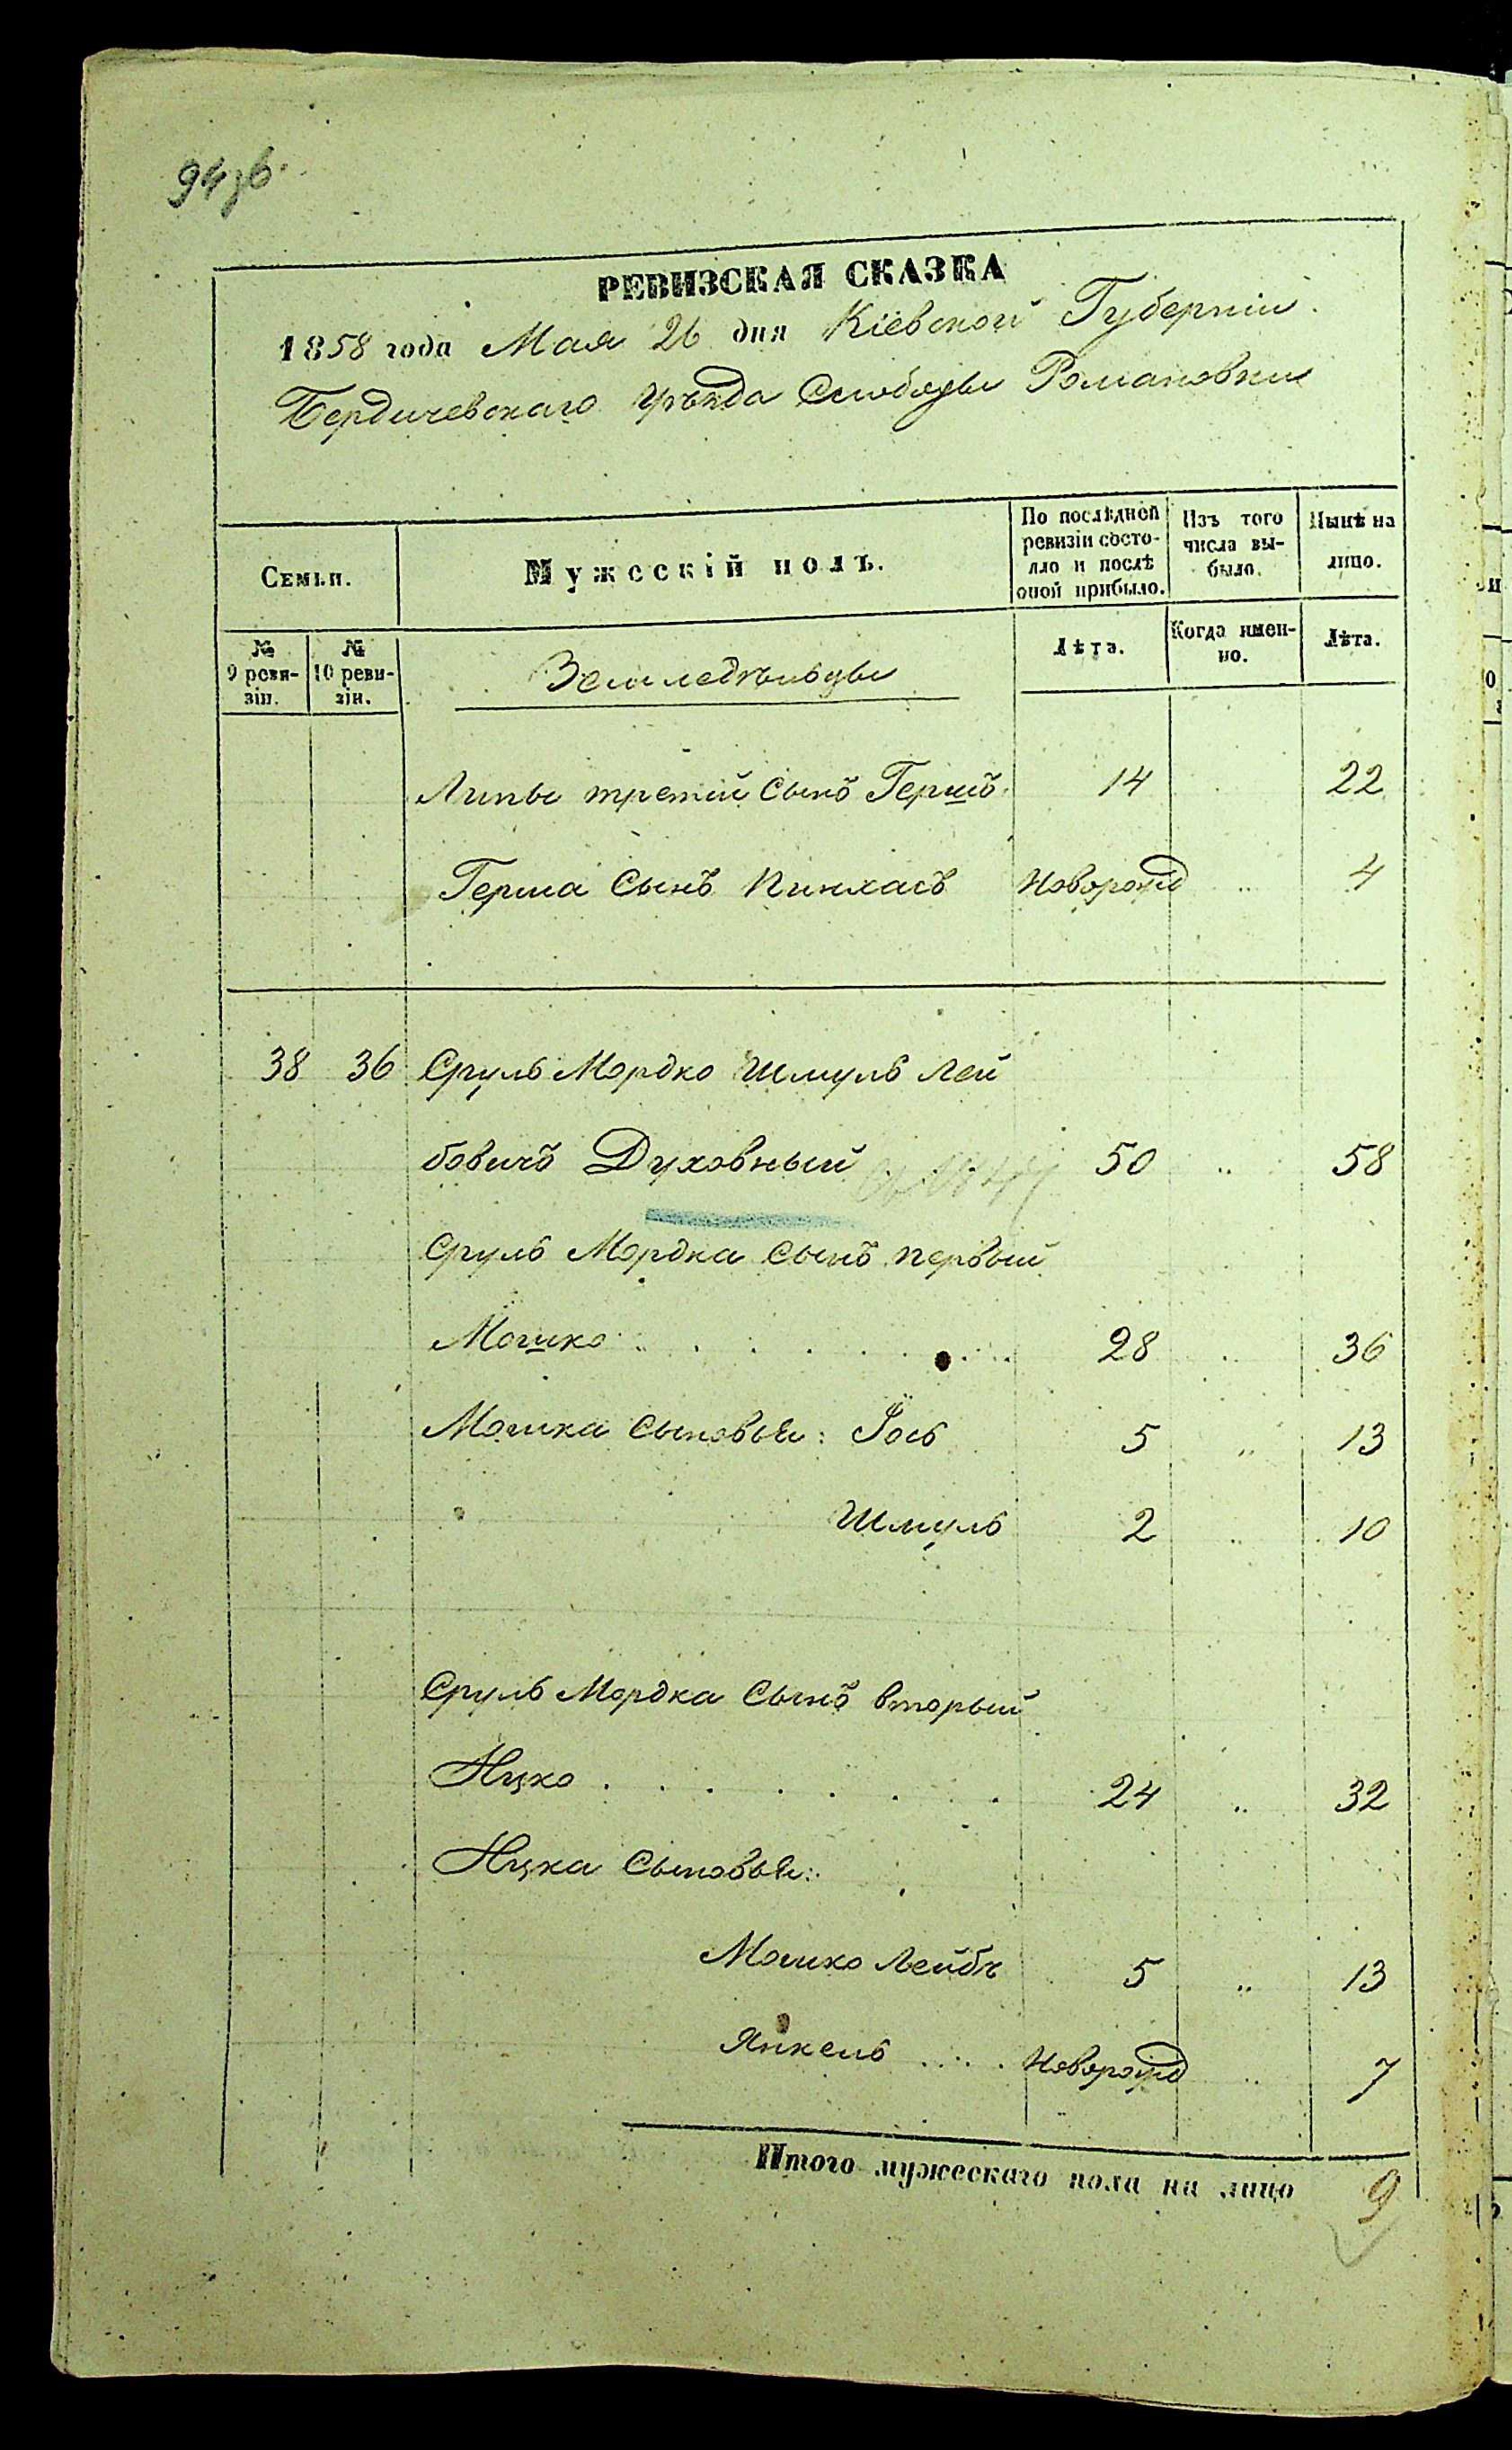 94зв.
РЕВИЗСКАЯ СКАЗКА
1858 года Мая 26 дня Кіевской Губерніи
Бердичевскаго Уѣзда Слободы Романовки
Семьи.
Мужескій полъ.
По послѣдней ревизіи состояло и послѣ оной прибыло.
Изъ того числа выбыло.
Нынѣ на лицо.
№ 9 ревизіи.
№ 10 ревизіи.
Земледѣльцы
Лѣта.
Когда именно.
Лѣта.
Липы третій сынъ Гершъ 14 22
Герша Сынъ Пинхасъ Новорожд „ 4
38 36 Сруль Мордко Шмуль Лей
бовичъ Духовный 50 „ 58
Сруль Мордка Сынъ первый
Мошко . . . . . . . 28 „ 36
Мошка сыновья: Іось 5 „ 13
Шмуль 2 „ 10
Сруль Мордка Сынъ вторый
Ицко . . . . . . . 24 „ 32
Ицка Сыновья:
Мошко Лейбъ 5 „ 13
Янкель .... Новорожд „ 7
Итого мужескаго пола на лицо 9